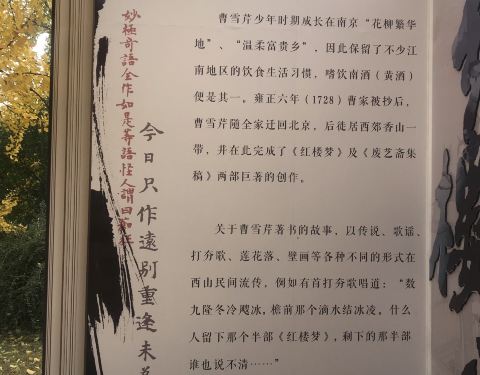 妙極奇語全作如是等語怪人謂曰
今日只作遠別重逢未
曹雪芹少年时期成长在南京“花柳繁华
地”、“温柔富贵乡”，因此保留了不少江
南地区的饮食生活习惯，嗜饮南酒（黄酒）
便是其一。雍正六年（1728）曹家被抄后，
曹雪芹随全家迁回北京，后徙居西郊香山一
带，并在此完成了《红楼梦》及《废艺斋集
稿》两部巨著的创作。
关于曹雪芹著书的故事，以传说、歌谣、
打夯歌、莲花落、壁画等各种不同的形式在
西山民间流传，例如有首打夯歌唱道：“数
九隆冬冷飕冰，檐前那个滴水结冰凌，什么
人留下那个半部《红楼梦》，剩下的那半部
谁也说不清……”